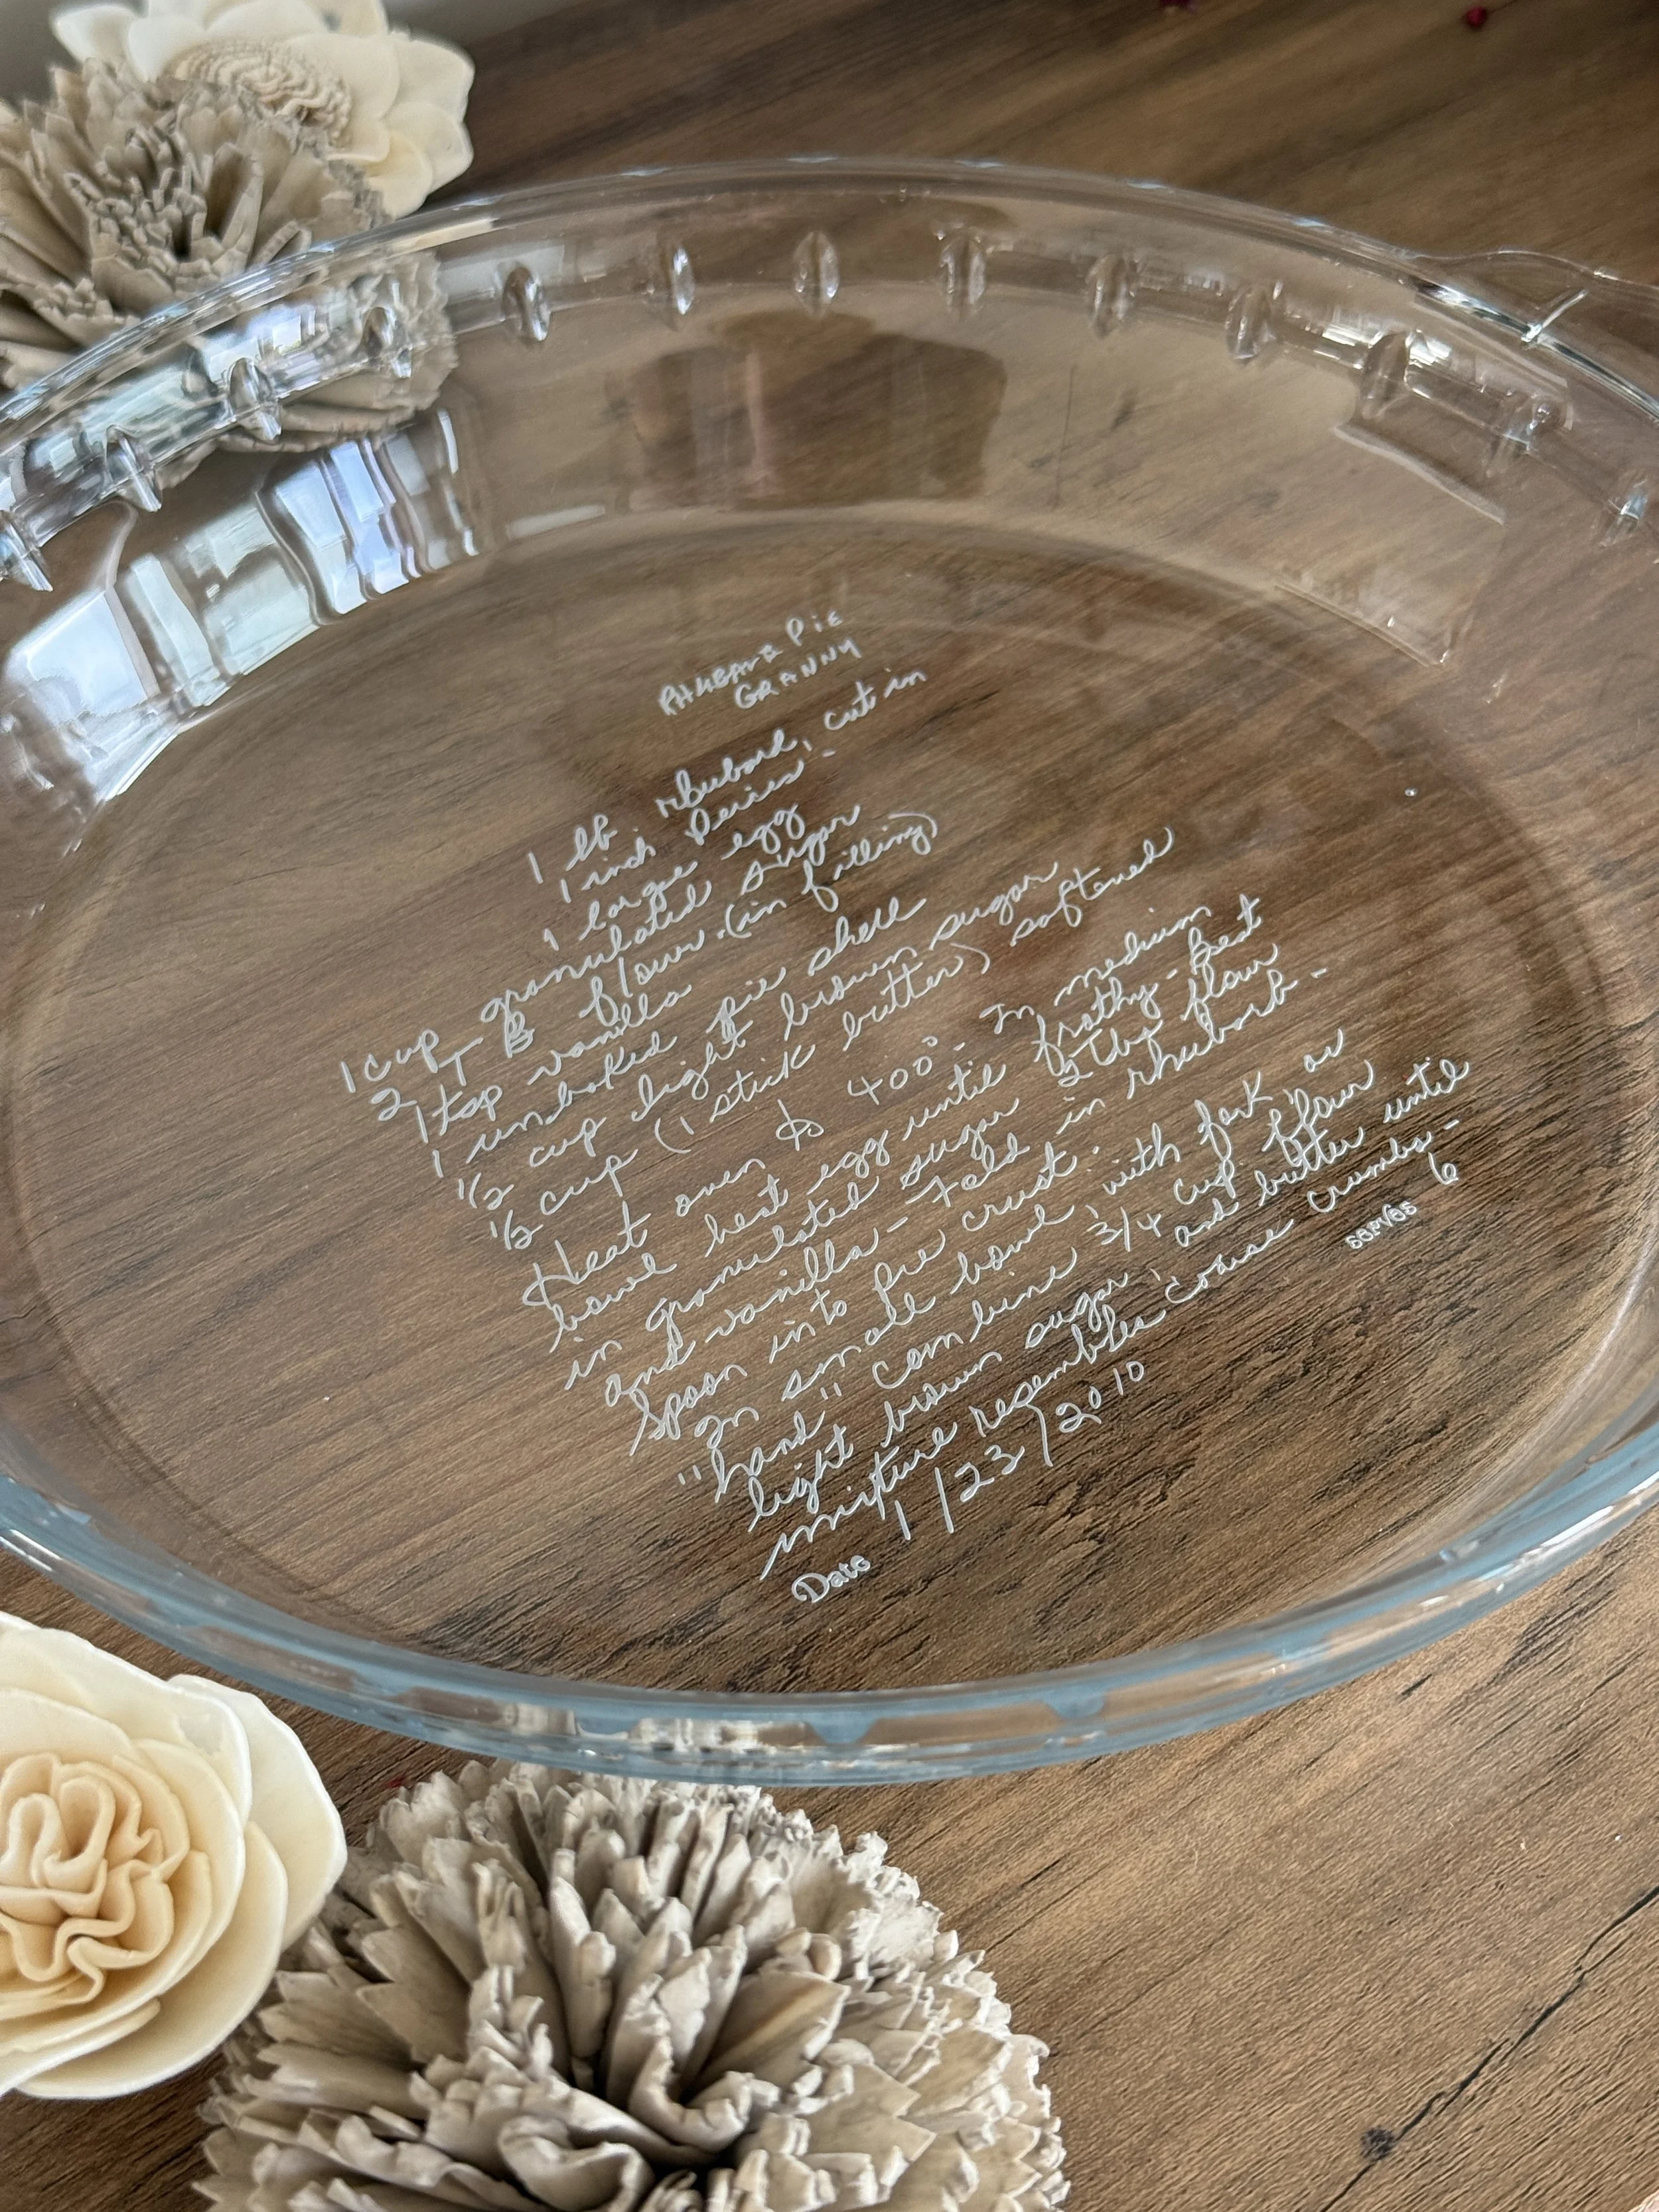 RHUBARB PiE
GRANNY
1 lb rhubard, cut in
1 inch Peices -
1 large egg
1 cup granulated sugar
2 TB flour (in filling)
1 tsp vanilla
1 unbaked pie shell
1/2 cup light brown sugar
1/2 cup (1 stick butter) softened
Heat oven to 400° - In medium
bowl heat egg until frothy - Beat
in granulated sugar 2 Tbs flour
and vanilla - Fold in rhubarb -
Spoon into pie crust.
In small bowl, with fork or
"hand" combine 3/4 cup flour
light brown sugar, and butter until
mixture resembles coarse crumbs -
Date 1/23/2010
serves 6